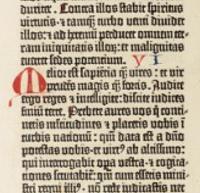 duriter. Contra illos stabit spiritus
virtutis: et tanq̄ȝ turbo venti dividet
illos: et ad heremū perducet omnem ter-
ram iniquitas illorū: et malignitas
evertet sedes potentium. VI
Melior est sapiētia q̄ȝ vires: et vir
prudēs magis q̄ȝ fortis. Audite
ergo reges et intelligite: discite iudices
finiū terre. Prebete aures vos q̇ conti-
netis multitudines et placetis vobis ī
turbis nationū: qm̄ data est a dn̄o
potestas vobis et virt⁹ ab altissimo:
qui interrogabit opa vestra et cogita-
tiones scrutabit᷑: qm̄ cum essetis mini-
stri regni illi⁹: nō recte iudicastis